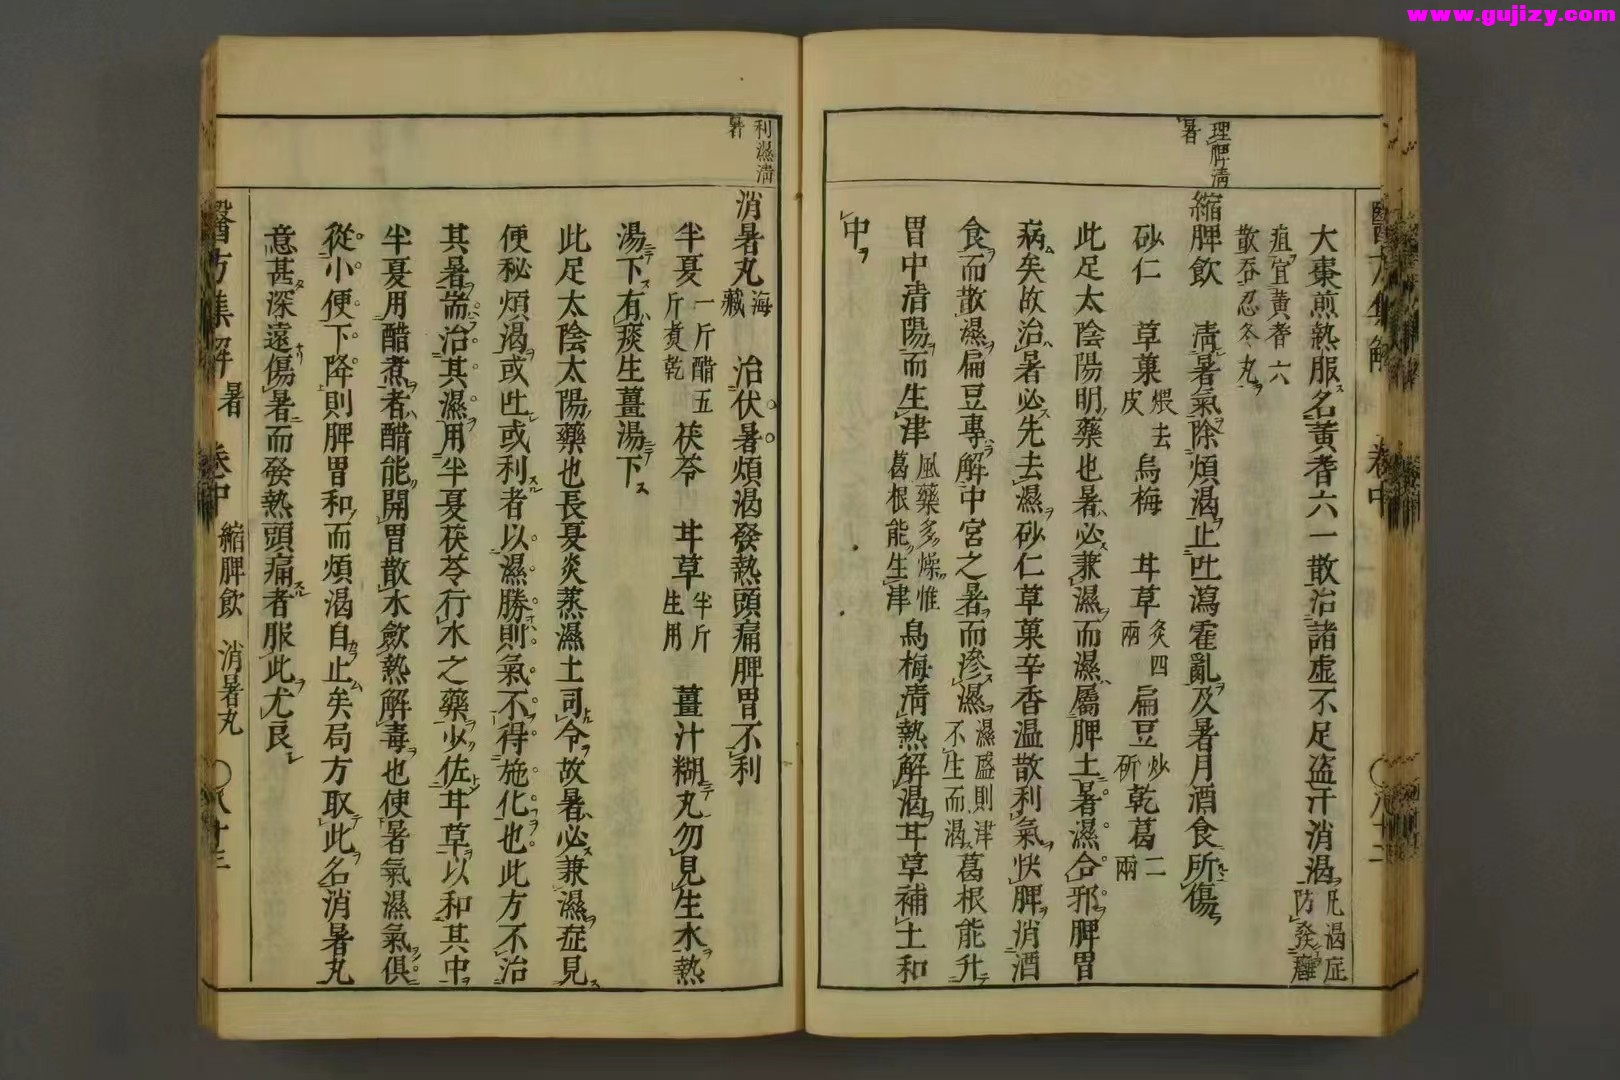 www.gujizy.com
醫方集解 卷中
大棗煎熱服名黃耆六一散治諸虛不足盜汗消渴凡渴症防發癰
疽宜黃耆六
散吞忍冬丸
理脾清暑
縮脾飲 清暑氣除煩渴止吐瀉霍亂及暑月酒食所傷
砂仁 草菓煨去皮 烏梅 甘草炙四兩 扁豆炒研 乾葛二兩
此足太陰陽明藥也暑必兼濕而濕屬脾土暑濕合邪脾胃
病矣故治暑必先去濕砂仁草菓辛香温散利氣快脾消酒
食而散濕扁豆專解中宮之暑而滲濕濕盛則津不生而渴葛根能升
胃中清陽而生津風藥多燥惟葛根能生津烏梅清熱解渴甘草補土和
中
利濕清暑
消暑丸海藏 治伏暑煩渴發熱頭痛脾胃不利
半夏一斤醋五斤煑乾 茯苓 甘草半斤生用 薑汁糊丸勿見生水熱
湯下有痰生薑湯下
此足太陰太陽藥也長夏炎蒸濕土司令故暑必兼濕症見
便秘煩渴或吐或利者以濕勝則氣不得施化也此方不治
其暑耑治其濕用半夏茯苓行水之藥少佐甘草以和其中
半夏用醋煮者醋能開胃散水斂熱解毒也使暑氣濕氣俱
從小便下降則脾胃和而煩渴自止矣局方取此名消暑丸
意甚深遠傷暑而發熱頭痛者服此尤良
醫方集解 暑 卷中 縮脾飲 消暑丸 八十三